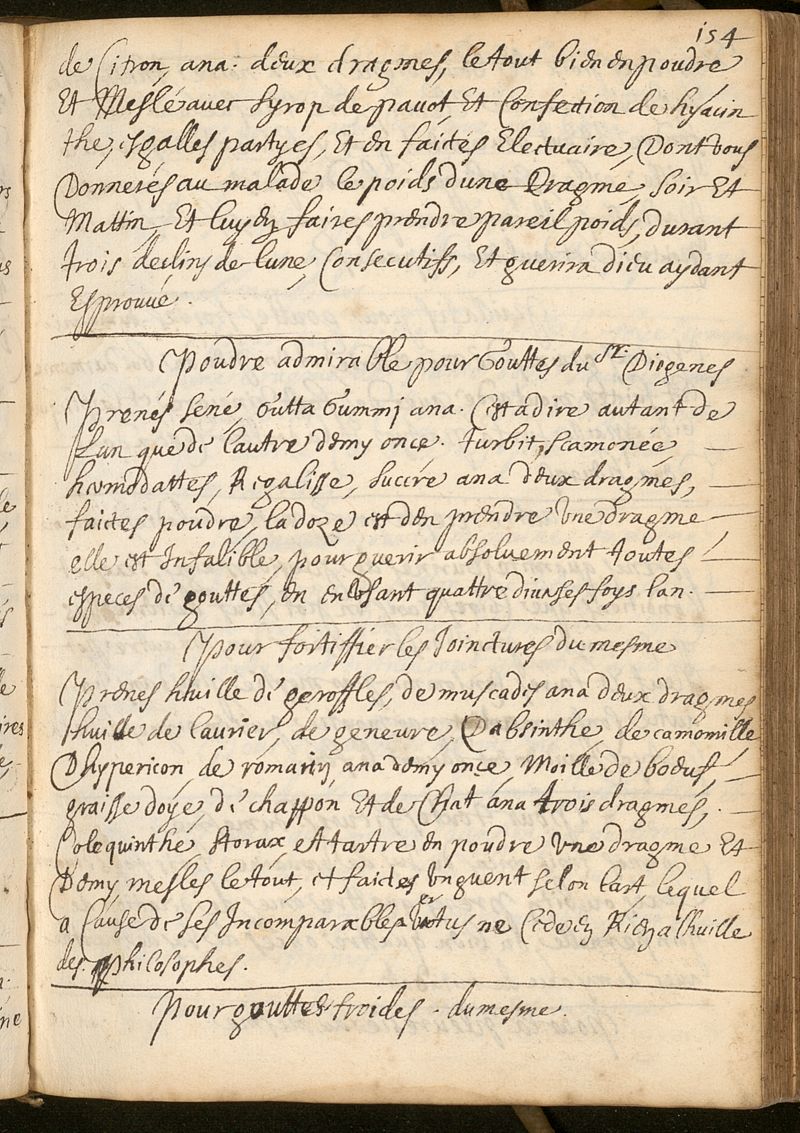 154
de Citron, ana. deux dragmes, le tout bien en poudre
Et Meslé avec Syrop de pavot, Et Confection de hyacin
the, esgalles partyes, Et en faictes Electuaire, Dont vous
Donnerés au malade le poids dune Dragme, Soir Et
Mattin, Et luy en faires prendre pareil poids, durant
trois declins de lune, Consecutifs, Et guerira dieu aydant
Esprouué.
Poudre admirable pour Gouttes du Sr. Diogenes
Prenés Sené, Gutta Gummj ana. Cest a dire autant de
Lun que de lautre demy once. turbit, scamonée,
hermodattes, Regalisse, succre ana deux dragmes,
faictes poudre, la doze est den prendre Vne dragme
elle est Infalible, pour guerir absoluement toutes
especes de gouttes, en en Vsant quattre diuerses foys lan.
Pour fortiffier les Joinctures du mesme
Prenes huille de geroffles, de muscades ana deux dragmes
huille de laurier, de geneure, Dabsinthe, de camomille
Dhypericon, de romarin, ana demy once, Moille de boeuf,
graisse doye, de chappon Et de Chat ana trois dragmes,
Colequinthe, Storax, et tartre en poudre Vne dragme Et
Demy, mesles le tout, et faictes Vnguent selon lart, lequel
a Cause de ses Incomparables Vertus ne Cede en Rien a lhuille
des philosophes.
Pour gouttes froides. du mesme.